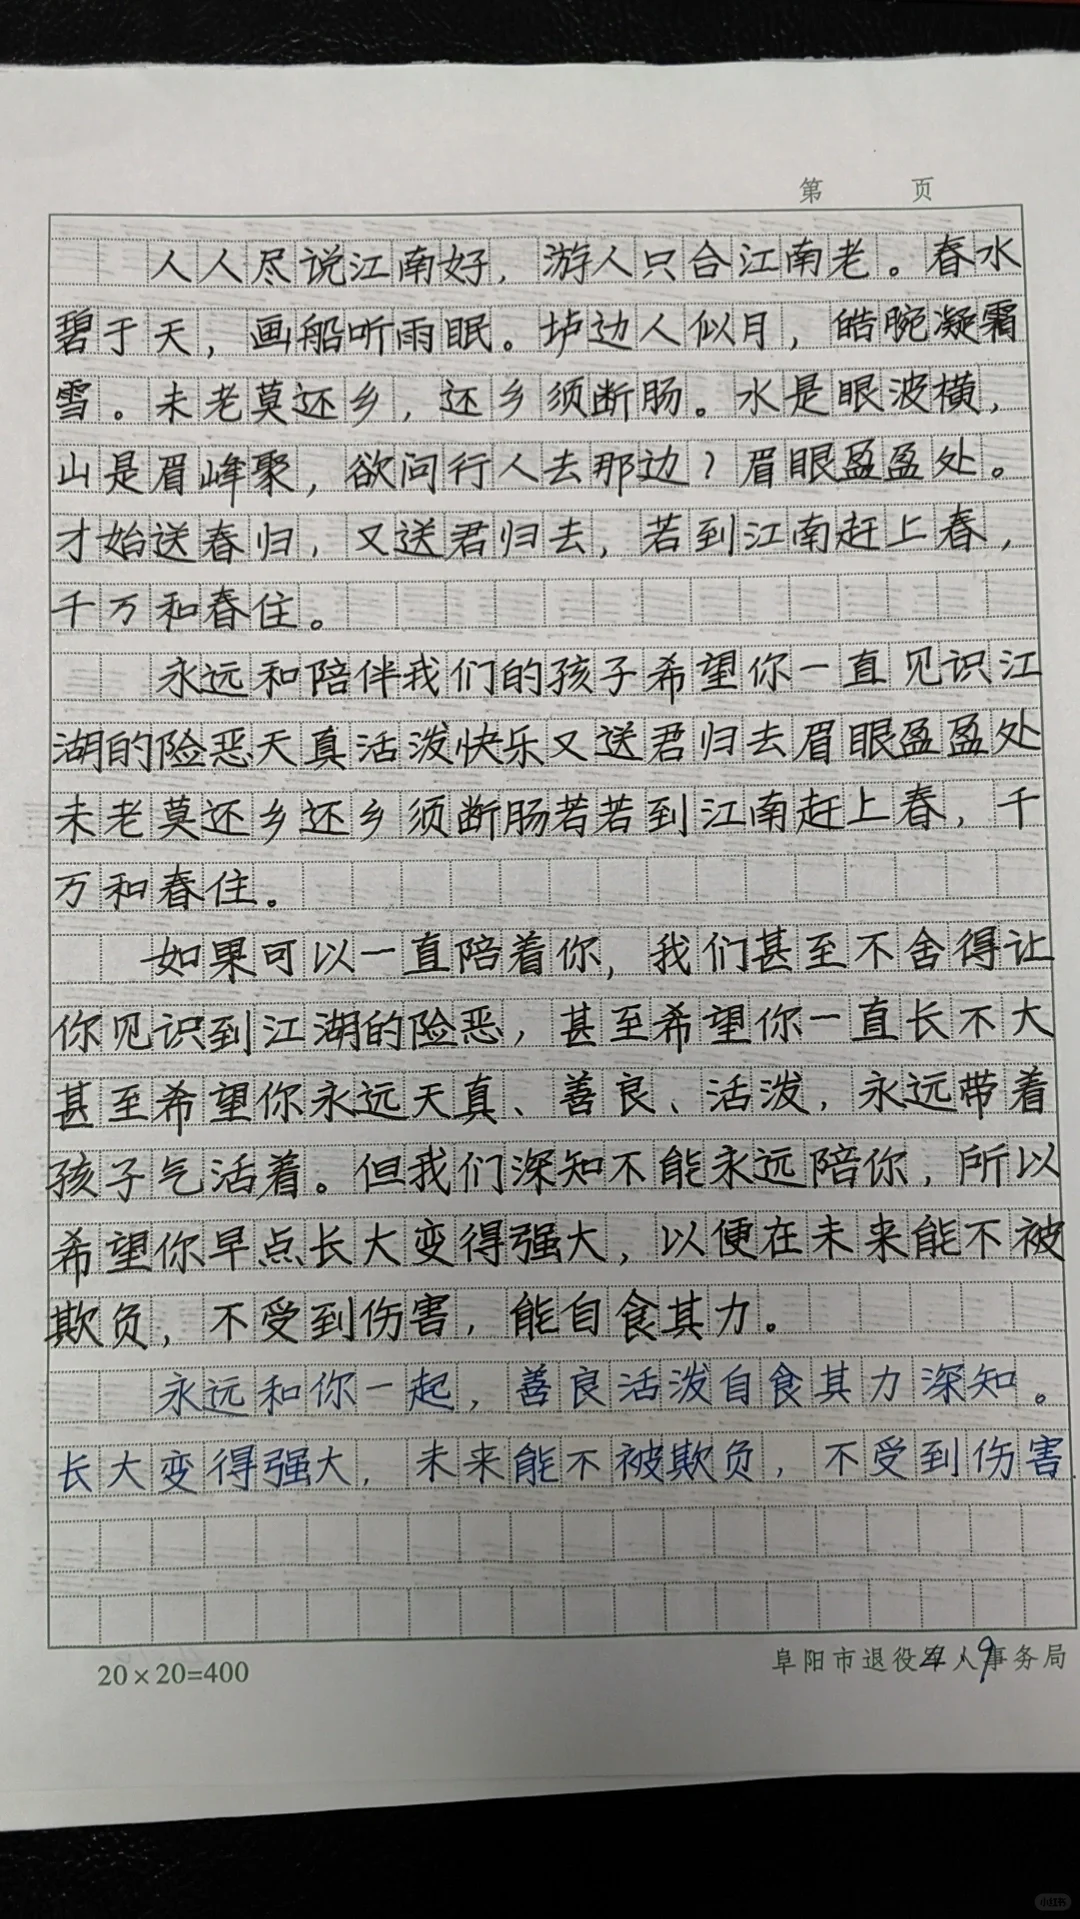 第 页
人人尽说江南好，游人只合江南老。春水
碧于天，画船听雨眠。垆边人似月，皓腕凝霜
雪。未老莫还乡，还乡须断肠。水是眼波横，
山是眉峰聚，欲问行人去那边？眉眼盈盈处。
才始送春归，又送君归去，若到江南赶上春，
千万和春住。
永远和陪伴我们的孩子希望你一直见识江
湖的险恶天真活泼快乐又送君归去眉眼盈盈处
未老莫还乡还乡须断肠若若到江南赶上春，千
万和春住。
如果可以一直陪着你，我们甚至不舍得让
你见识到江湖的险恶，甚至希望你一直长不大
甚至希望你永远天真、善良、活泼，永远带着
孩子气活着。但我们深知不能永远陪你，所以
希望你早点长大变得强大，以便在未来能不被
欺负，不受到伤害，能自食其力。
永远和你一起，善良活泼自食其力深知。
长大变得强大，未来能不被欺负，不受到伤害
20×20=400
阜阳市退役军人事务局
小红书